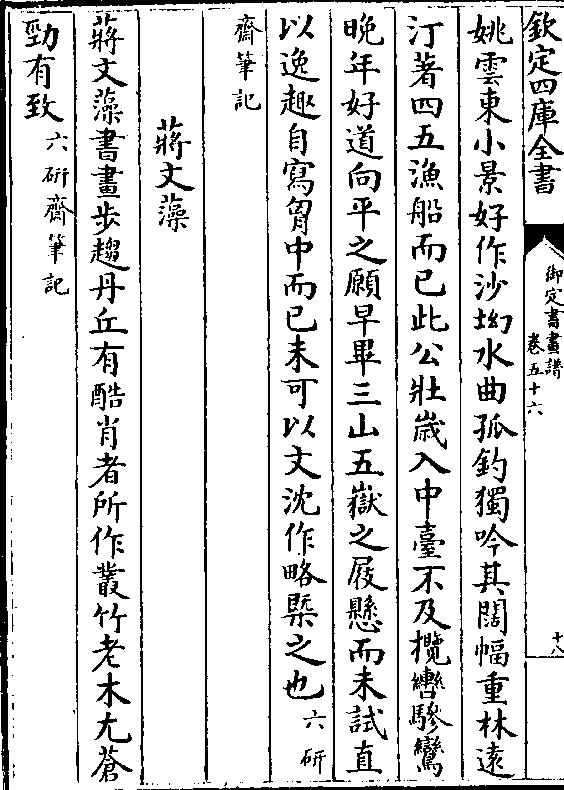 欽定四庫全書
御定書畫譜
卷五十六
十八
姚雲東小景好作沙坳水曲孤釣獨吟其闊幅重林遠
汀著四五漁船而已此公壯歲入中臺不及攬轡驂鸞
晚年好道向平之願早畢三山五嶽之屐懸而未試直
以逸趣自寫胷中而已未可以文沈作略槩之也六研
齋筆記
蔣文藻
蔣文藻書畫步趨丹丘有酷肖者所作叢竹老木尤蒼
勁有致六研齋筆記